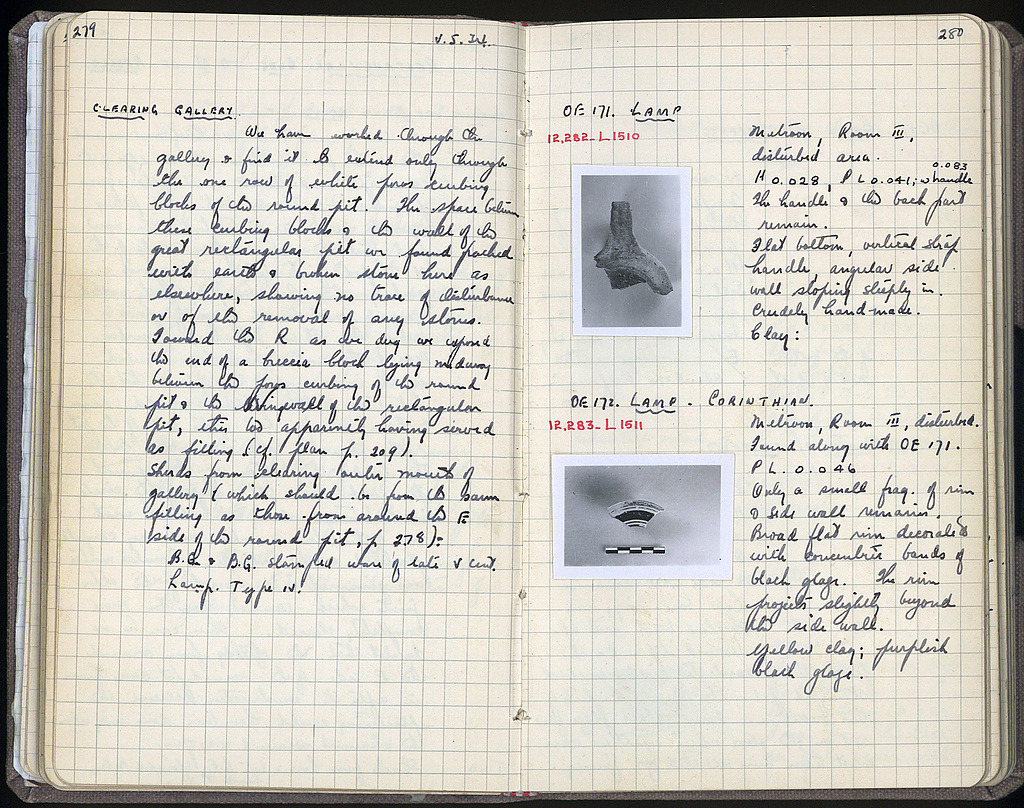 279
CLEARING GALLERY
We have worked through the
gallery & find it to extend only through
the one row of white poros curbing
blocks of the round pit. The space between
these curbing blocks & the wall of the
great rectangular pit we found packed
with earth & broken stone here as
elsewhere, showing no trace of disturbance
or of the removal of any stones.
Toward the R as we dug we exposed
the end of a breccia block lying midway
between the poros curbing of the round
pit & the wall of the rectangular
pit, this too apparently having served
as filling (cf. plan p. 209).
Sherds from clearing outer mouth of
gallery (which should be from the same
filling as those from around the E
side of the round pit, p 278):
B.G. & B.G. stamped ware of late V cent.
Lamp. Type IV.
280
OE 171. LAMP
12,282-L1510
Metroon, Room III,
disturbed area.
0.083
H 0.028, P L 0.041; w handle
The handle & the back part
remain.
Flat bottom, vertical strap
handle, angular side
wall sloping steeply in.
Crudely hand-made.
Clay:
OE 172. LAMP - CORINTHIAN.
12,283-L1511
Metroon, Room III, disturbed.
Found along with OE 171.
P L. 0.046
Only a small frag. of rim
& side wall remains.
Broad flat rim decorated
with concentric bands of
black glaze. The rim
projects slightly beyond
the side wall.
Yellow clay; purplish
black glaze.